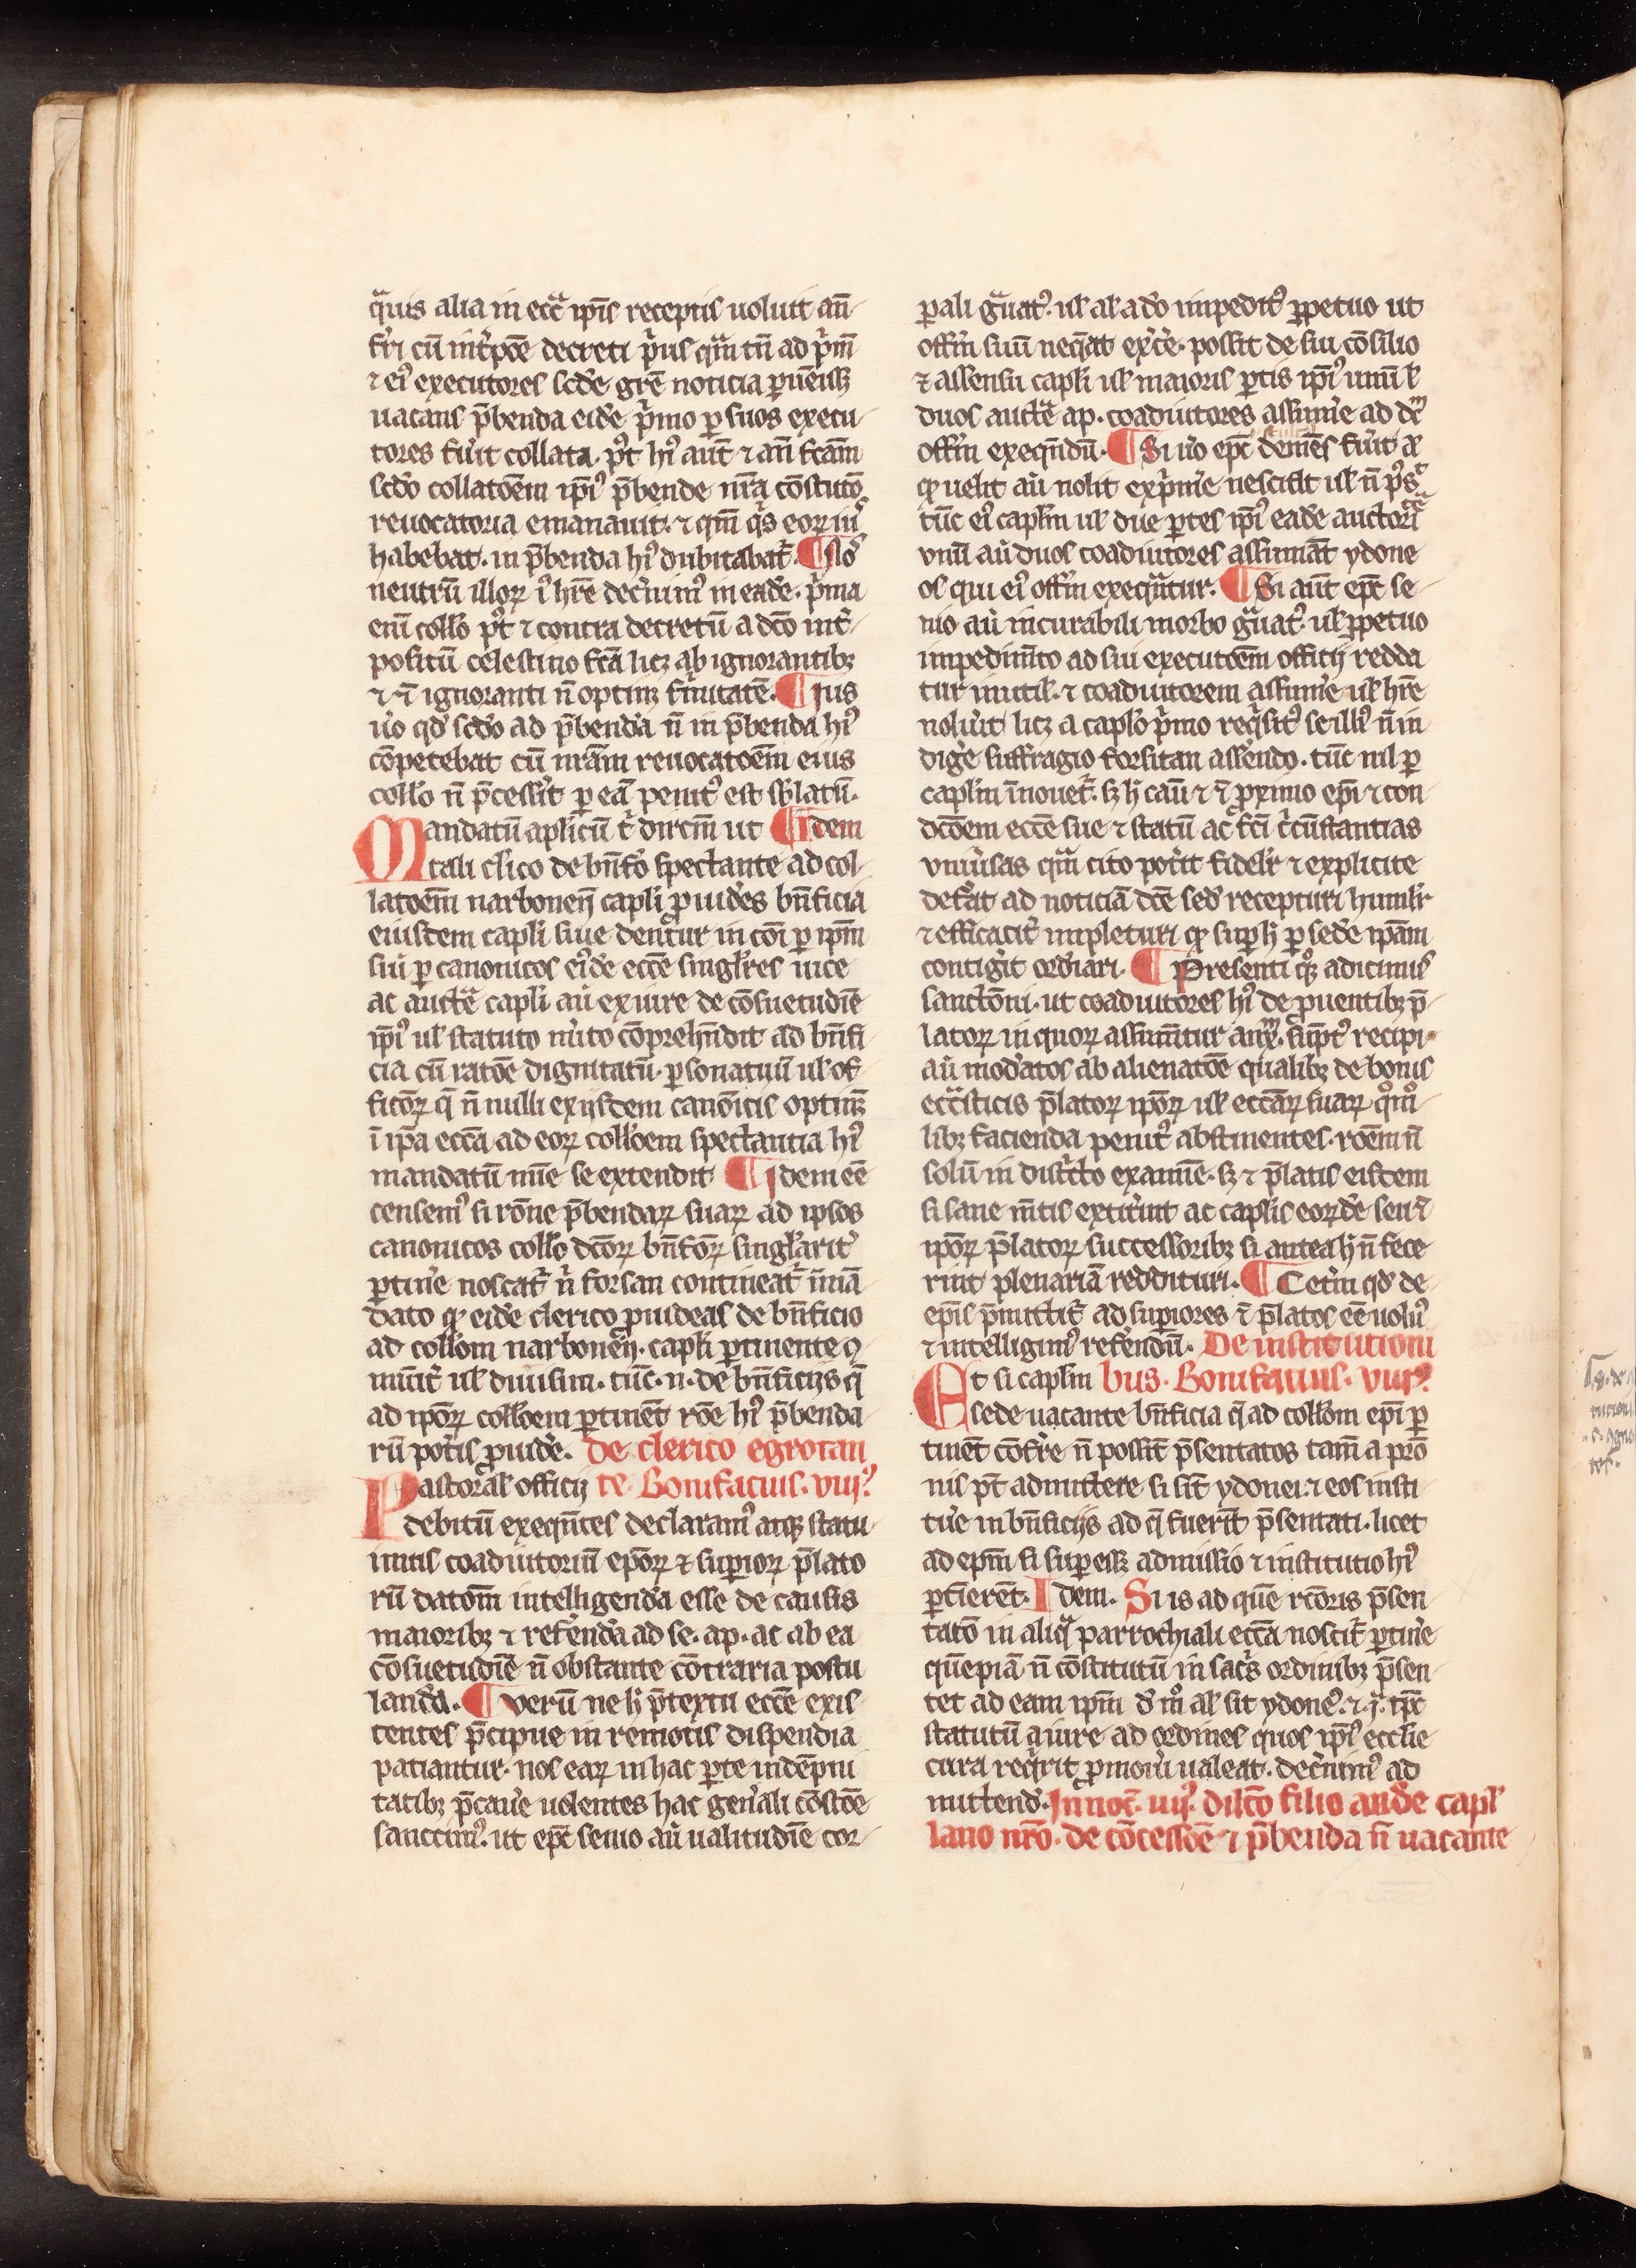 q̾uis alia in ecc̾a ip̄is receptis uoluit an̄
fr̄i cū int̾p̄oe decreti p̾us qm̄ tn̄ ad p̾m̄
⁊ ei⁹ executores scd̄e gr̄e noticia puēiss
uacans p̄benda eidē p̾mo p suos execu
tores fu̾it collata. p⁹t hi⁹ aut̄ ⁊ an̄ fcām
scd̄o collatōem ip̄i⁹ p̄bende nr̄a cōstituto
reuocatoria emanauit. ⁊ qm̄ q̾s eoꝝ iu⁹
habebat. in p̄benda hi⁹ dubitabat̾. ¶ Nos
neutrū illoꝝ i⁹ hr̄e decn̾im⁹ in eadē. p̾ma
em̄ coll̄o p⁹t ⁊ contra decretū a dc̄o int̾
positū celestino fcā licꝫ ab ignorantibꝫ
⁊ ī ignoranti n̄ optinꝫ firmitatē. ¶ Jus
u̾o qd̾ scd̄o ad p̄benda n̄ in p̄benda hi⁹
cōpetebat cū nr̄am reuocatōem eius
coll̄o n̄ p̄cessit̾ p eā penit⁹ est sblatū.
Mandatū aplicū t̾ dircm̄ ut ¶ Idem
tali cl̾ico de bn̄fo spectante ad col
latōem narbonen̄ capl̾i puides bn̄ficia
eiusdem capl̾i siue dent̾ur in cōi p ipm̄
siu̾ p canonicos ei⁹dē ecc̄e singl̾res uice
ac auct̄e capl̾i au̾ ex iure de cōsuetudīe
ip̄i⁹ ul̾ statuto nu̾to cōprehn̄dit ad bn̄fi
cia cū ratōe dignitatū. psonatuū ul̾ of
ficōꝝ q̄ n̄ nulli ex ijsdem canōicis optinꝫ
ī ip̄a ecc̄a ad eoꝝ coll̄oem spectantia hi⁹
mandatū mīe se extendit ¶ Jdem eē
censem⁹ si rōne p̄bendaꝝ suaꝝ ad ipsos
canonicos coll̄o dc̄oꝝ bn̄foꝝ singl̾arit̾
ptin̾e noscat̾ n̾ forsan contineat̾ ī mā
dato qp̾ eidē clerico puideas de bn̄ficio
ad coll̄om narbonen̄. capl̾i ptinente ↄ
mūit̾ ul̾ diuisim. tūc .n. de bn̄ficijs q̄
ad ip̄oꝝ coll̄oem ptinēt rōe hi⁹ p̄benda
rū pot̾is puidē. de clerico egrotan
Pastoral̾ officij te Bonifacius. viij⁹
debitū exeqn̄tes declaram⁹ atqꝫ statu
imus coadiutoriū ep̄oꝝ ⁊ supioꝝ p̄lato
rū datōm intelligenda esse de causis
maioribꝫ ⁊ referenda ad se. ap. ac ab ea
cōsuetudīe n̄ obstante cōtraria postu
landa. ¶ Verū ne h̾ p̄textu ecc̄e exis
tentes p̄cipue in remotis dispendia
patiantur. nos eaꝝ in hac pte indēpni
tatibꝫ p̄cau̾e uolentes hac gen̾ali cōstōe
sanctim⁹. ut ep̄c senio au̾ ualitudīe cor
pali g̾uat⁹. ul̾ al̾ adō impedit⁹ ppetuo ut
offm̄ suū neq̄at exc̾e. possit de sui cōsilio
⁊ assensu capl̾i ul̾ maioris ptis ip̄i⁹ unū l̾
duos auct̄e ap. coadiutores assum̾e ad dc̄m
offm̄ exeqn̄dū. ¶ Si u̾o ep̄c demēs fu̾it a
qp̾ uelit au̾ nolit exp̾m̾e nesciat ul̾ n̄ p⁹s̄
tūc ei⁹ caplm̄ ul̾ due ptes ip̄i⁹ eadē auctorit
vnū au̾ duos coadiutores assumāt ydone
os qui ei⁹ offm̄ exequ̾tur. ¶ Si aut̄ ep̄c se
nio au̾ incurabili morbo g̾uat⁹ ul̾ ppetuo
impedim̄to ad sui executōem officij redda
tur inutil̾. ⁊ coadiutorem assum̾e ul̾ hr̄e
nolu̾it licꝫ a caplo p̾mo reqs̾it⁹ se illi⁹ n̄ in
dig̾e suffragio forsitan assendo. tūc nil p
caplm̄ īnouet̾. sꝫ h̾ cau̾ ⁊ ī pximo ep̄i ⁊ con
dcōem ecc̄e sue ⁊ statū ac fc̄i c̾cūstantias
vniu̾sas qm̄ cito pot̾it fidel̾r ⁊ explicite
defe̾at ad noticiā dc̄e sed̾ recepturi huml̾r
⁊ efficacit̾ impleturi qp̾ sup h̾ p sedē ipām
contig̾it ord̾iari. ¶ Presenti q⁹qꝫ adicimus
sanctōni. ut coadiutores hi⁹ de puentibꝫ p̄
latoꝝ in quoꝝ assumn̄tur aux̄m. supt⁹ recipi
au̾ mod̾atos ab alienatōe qualibꝫ de bonis
ecc̾isticis p̄latoꝝ ip̄oꝝ ul̾ ecc̄aꝝ suaꝝ q⁰m⁰
libꝫ facienda penit⁹ abstinentes. rōem n̄
solū in dist̾cto examīe. sꝫ ⁊ p̄latis eisdem
si sane mn̄tis extit̾int ac caplis eoꝝdē seu ī
ip̄oꝝ p̄latoꝝ successoribꝫ si antea h̾ n̄ fece
rint plenariā reddituri. ¶ Cetm̾ qd̾ de
ep̄is p̄mittit̾ ad supiores ⁊ p̄latos eē uolu⁹
⁊ intelligim⁹ refe̾ndū. De institutioni
Et si caplm̄ bus. Bonifatius. viij⁹.
sede uacante bn̄ficia q̄ ad coll̄om ep̄i p
tinēt cōfe̾re n̄ possit p̄sentatos tam̄ a prō
nis pt̄ admittere si sīt ydonei. ⁊ eos insti
tu̾e in bn̄ficijs ad q̄ fuerīt p̄sentati. licet
ad ep̄m si supesset admissio ⁊ institutio hi⁹
ptierēt. Idem. Si is ad quē rc̄oris p̄sen
tatō in aliqu̾a parrochiali ecc̄a noscit̾ ptin̾e
quēpiā n̄ cōstitutū in sac̾s ordinibꝫ p̄sen
tet ad eam ipm̄ d̾ m⁰ al̾ sit ydone⁹. ⁊ ī. tp̄c
statutū a iure ad ordines quos ip̄i⁹ ecclie
cura req̾rit pmou̾i ualeat. decn̾im⁹ ad
mittend̾. Innoc̄. iiij⁹. dilc̄o filio andē capl̾
lano nr̄o. de cōcessōe ⁊ p̄benda n̄ uacante